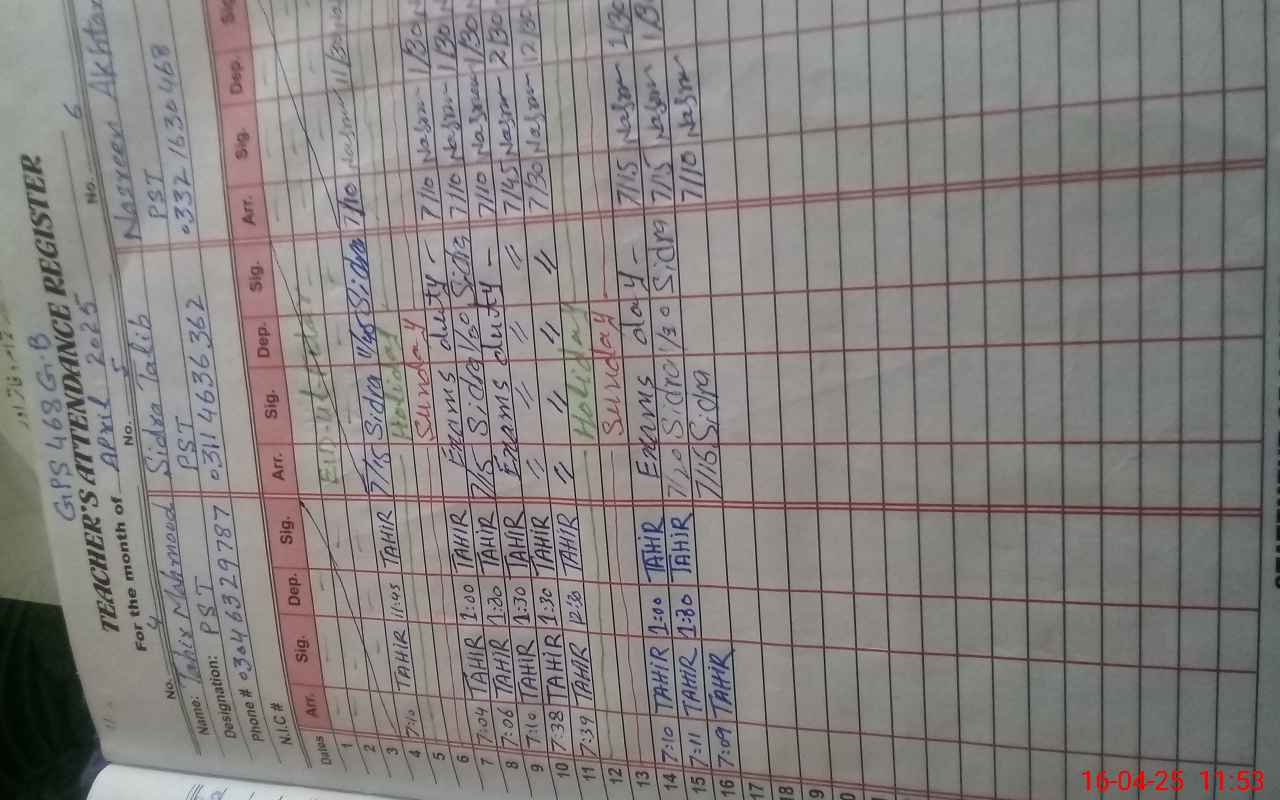 GPS 468 G.B
TEACHER'S ATTENDANCE REGISTER
For the month of April 2025
No. 4 No. 5 No. 6
Name: Tahir Mahmood Sidra Talib Nasreen Akhtar
Designation: PST PST PST
Phone # 03046329787 03114636362 03321630468
N.I.C #
Dates Arr. Sig. Dep. Sig. Arr. Sig. Dep. Sig. Arr. Sig. Dep. Sig.
1
2
3
4 7:10 TAHIR 11:45 TAHIR 7/15 Sidra 11/45 Sidra 7/10 Nasreen 11/30
5 Holiday
6 Sunday
7 7:04 TAHIR 1:00 TAHIR Exams duty - 7/10 Nasreen 1/30
8 7:06 TAHIR 1:30 TAHIR 7/15 Sidra 1/30 Sidra 7/10 Nasreen 1/30
9 7:10 TAHIR 1:30 TAHIR Exams duty - 7/10 Nasreen 1/30
10 7:38 TAHIR 1:30 TAHIR 〃 〃 〃 〃 7/45 Nasreen 2/30
11 7:39 TAHIR 12:30 TAHIR 〃 〃 〃 〃 7/30 Nasreen 12/30
12 Holiday
13 Sunday
14 7:10 TAHIR 1:00 TAHIR Exams day - 7/15 Nasreen 1/30
15 7:11 TAHIR 1:30 TAHIR 7/20 Sidra 1/30 Sidra 7/15 Nasreen 1/30
16 7:09 TAHIR 7/15 Sidra 7/10 Nasreen
17
18
16-04-25 11:53